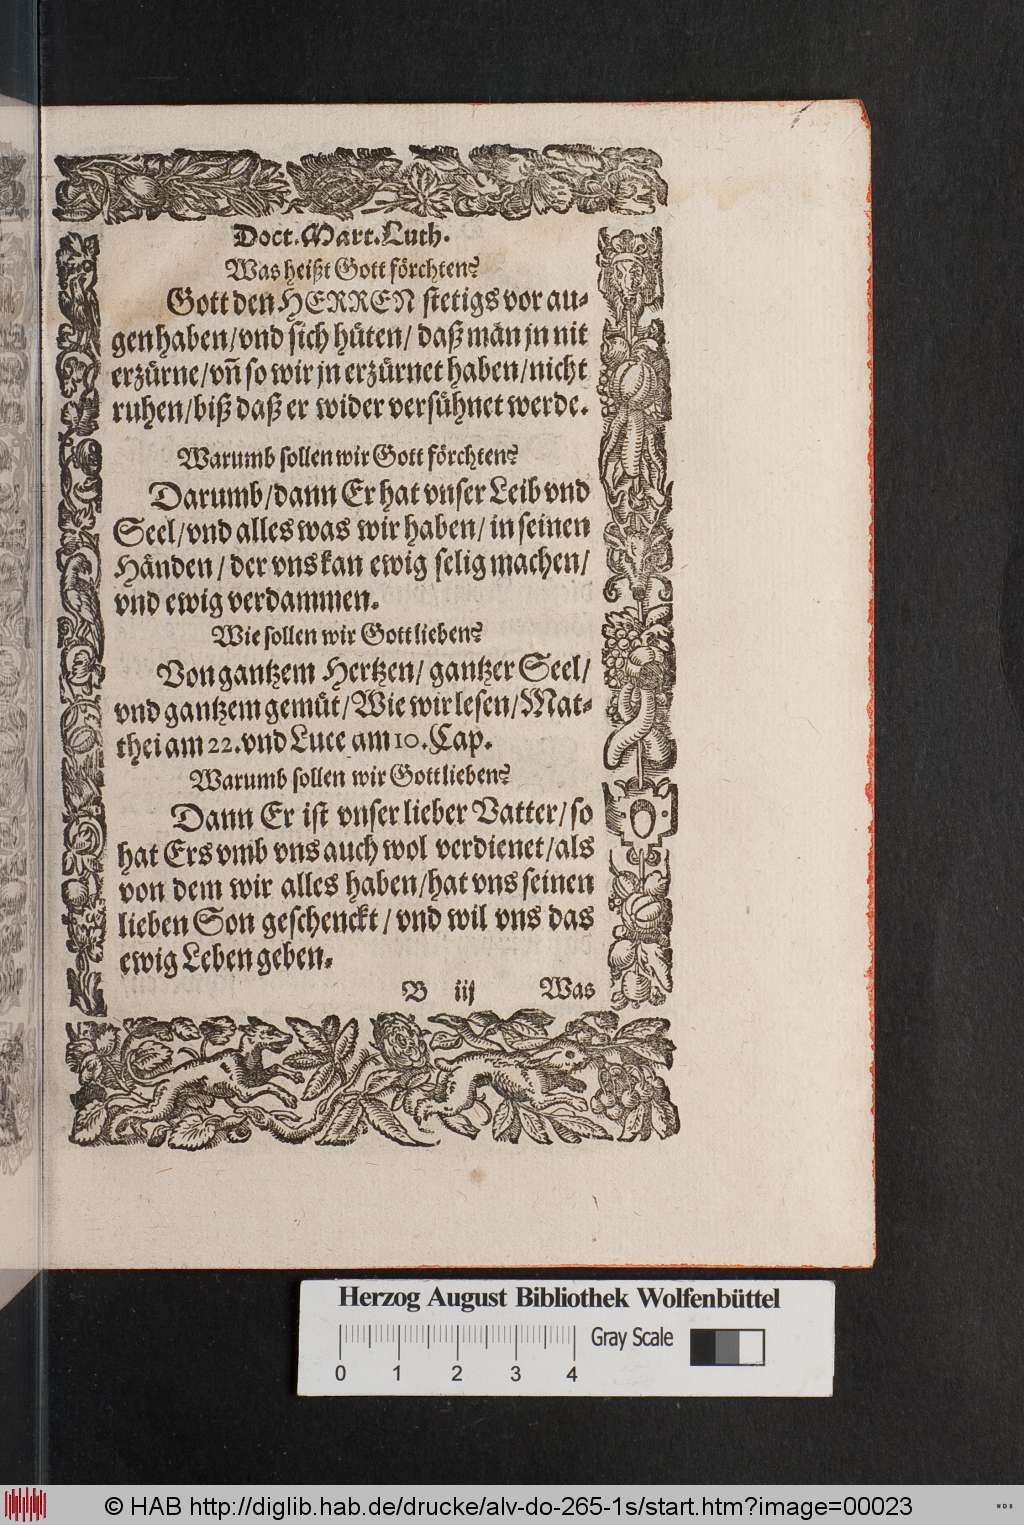 Doct. Mart. Luth.
Was heißt Gott förchten?
Gott den HERREN stetigs vor au-
gen haben/ vnd sich hüten/ daß män jn nit
erzürne/ vñ so wir jn erzürnet haben/ nicht
ruhen/ biß daß er wider versühnet werde.
Warumb sollen wir Gott förchten?
Darumb/ dann Er hat vnser Leib vnd
Seel/ vnd alles was wir haben/ in seinen
Händen/ der vns kan ewig selig machen/
vnd ewig verdammen.
Wie sollen wir Gott lieben?
Von gantzem Hertzen/ gantzer Seel/
vnd gantzem gemüt/ Wie wir lesen/ Mat-
thei am 22. vnd Luce am 10. Cap.
Warumb sollen wir Gott lieben?
Dann Er ist vnser lieber Vatter/ so
hat Ers vmb vns auch wol verdienet/ als
von dem wir alles haben/ hat vns seinen
lieben Son geschenckt/ vnd wil vns das
ewig Leben geben.
B iij Was
Herzog August Bibliothek Wolfenbüttel
Gray Scale
0 1 2 3 4
© HAB http://diglib.hab.de/drucke/alv-do-265-1s/start.htm?image=00023